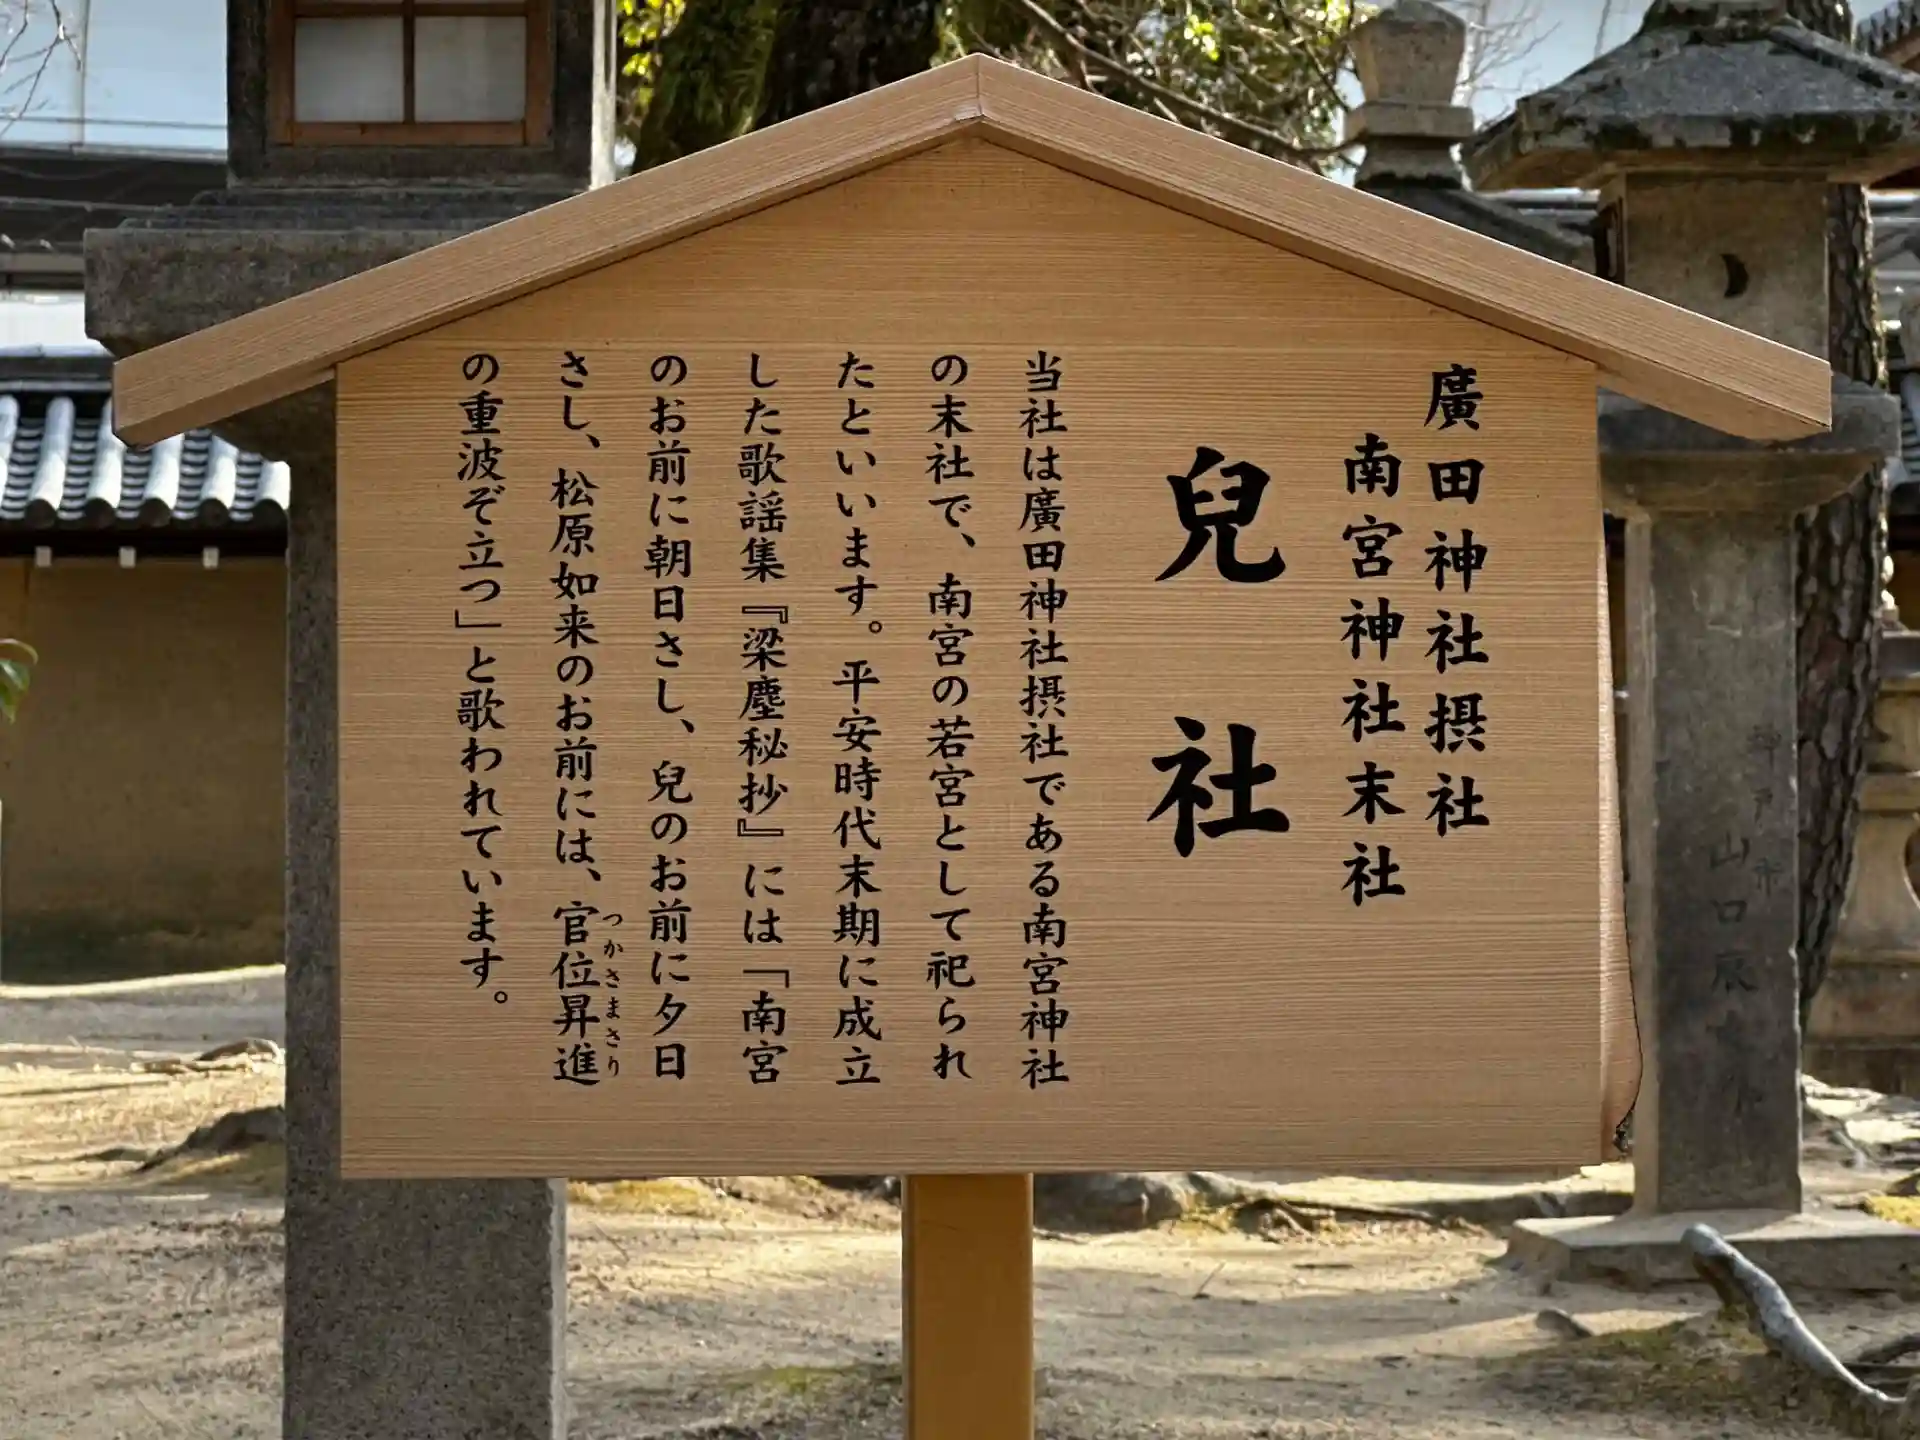 廣田神社摂社
南宮神社末社
兒社
当社は廣田神社摂社である南宮神社
の末社で、南宮の若宮として祀られ
たといいます。平安時代末期に成立
した歌謡集『梁塵秘抄』には「南宮
のお前に朝日さし、兒のお前に夕日
さし、松原如来のお前には、官位昇進
つかさまさり
の重波ぞ立つ」と歌われています。
山口